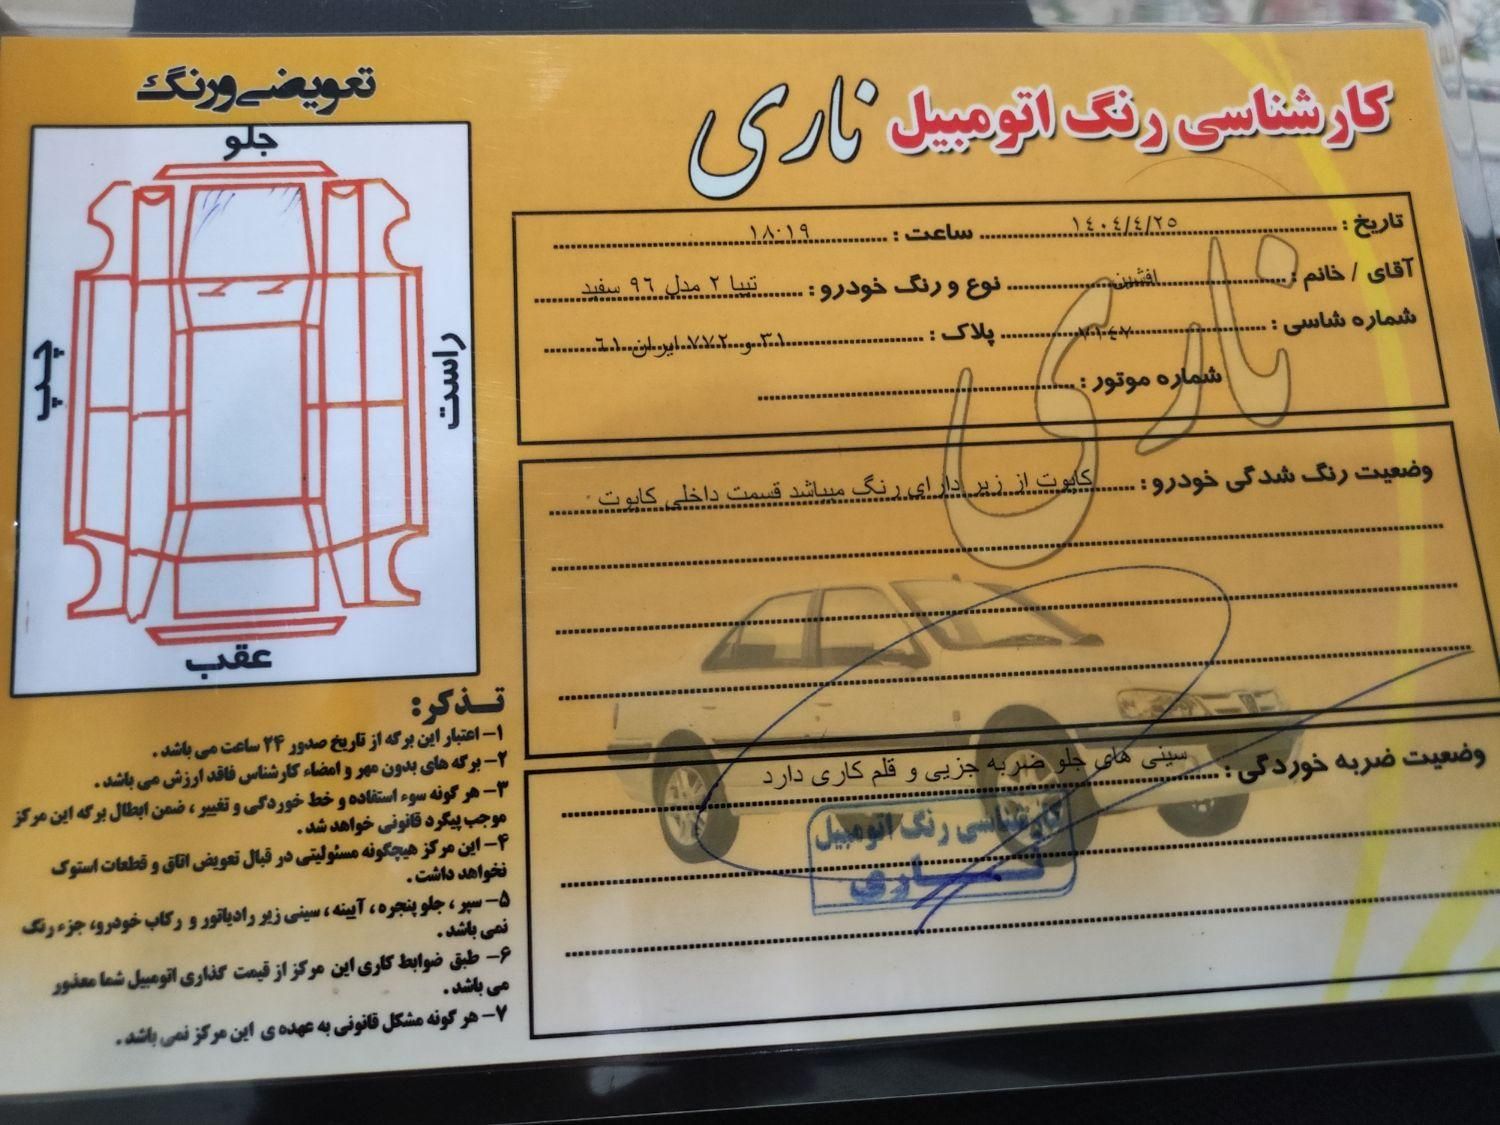 کارشناسی رنگ اتومبیل ناری
تاریخ : ۱۴۰۴/۴/۲۵ ساعت : ۱۸:۱۹
آقای / خانم : افشین نوع و رنگ خودرو : تیبا ۲ مدل ۹۶ سفید
شماره شاسی : ۷۱۴۷ پلاک : ۳۱ و ۷۷۲ ایران ۶۱
شماره موتور :
ناری
وضعیت رنگ شدگی خودرو : کاپوت از زیر دارای رنگ میباشد قسمت داخلی کاپوت
وضعیت ضربه خوردگی : سینی های جلو ضربه جزیی و قلم کاری دارد
کارشناسی رنگ اتومبیل
نــاری
تعویضی و رنگ
جلو
چپ
راست
عقب
تـذکر :
۱- اعتبار این برگه از تاریخ صدور ۲۴ ساعت می باشد .
۲- برگه های بدون مهر و امضاء کارشناس فاقد ارزش می باشد .
۳- هر گونه سوء استفاده و خط خوردگی و تغییر ، ضمن ابطال برگه این مرکز
موجب پیگرد قانونی خواهد شد .
۴- این مرکز هیچگونه مسئولیتی در قبال تعویض اتاق و قطعات استوک
نخواهد داشت .
۵- سپر ، جلو پنجره ، آیینه ، سینی زیر رادیاتور و رکاب خودرو، جزء رنگ
نمی باشد .
۶- طبق ضوابط کاری این مرکز از قیمت گذاری اتومبیل شما معذور
می باشد .
۷- هر گونه مشکل قانونی به عهده ی این مرکز نمی باشد .